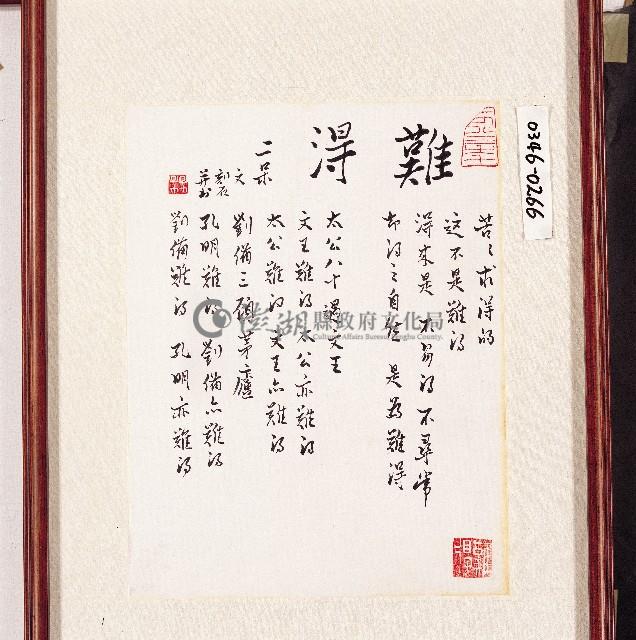 難得
苦々求得的
這不是難得
得來是 不易得 不尋常
却得之自然 是為難得
太公八十遇文王
文王難得 太公亦難得
太公難得 文王亦難得
劉備三顧茅廬
孔明難得 劉備亦難得
劉備難得 孔明亦難得
二呆
文
刻石
并書
0346-0266
澎湖縣政府文化局
Cultural Affairs Bureau, Penghu County